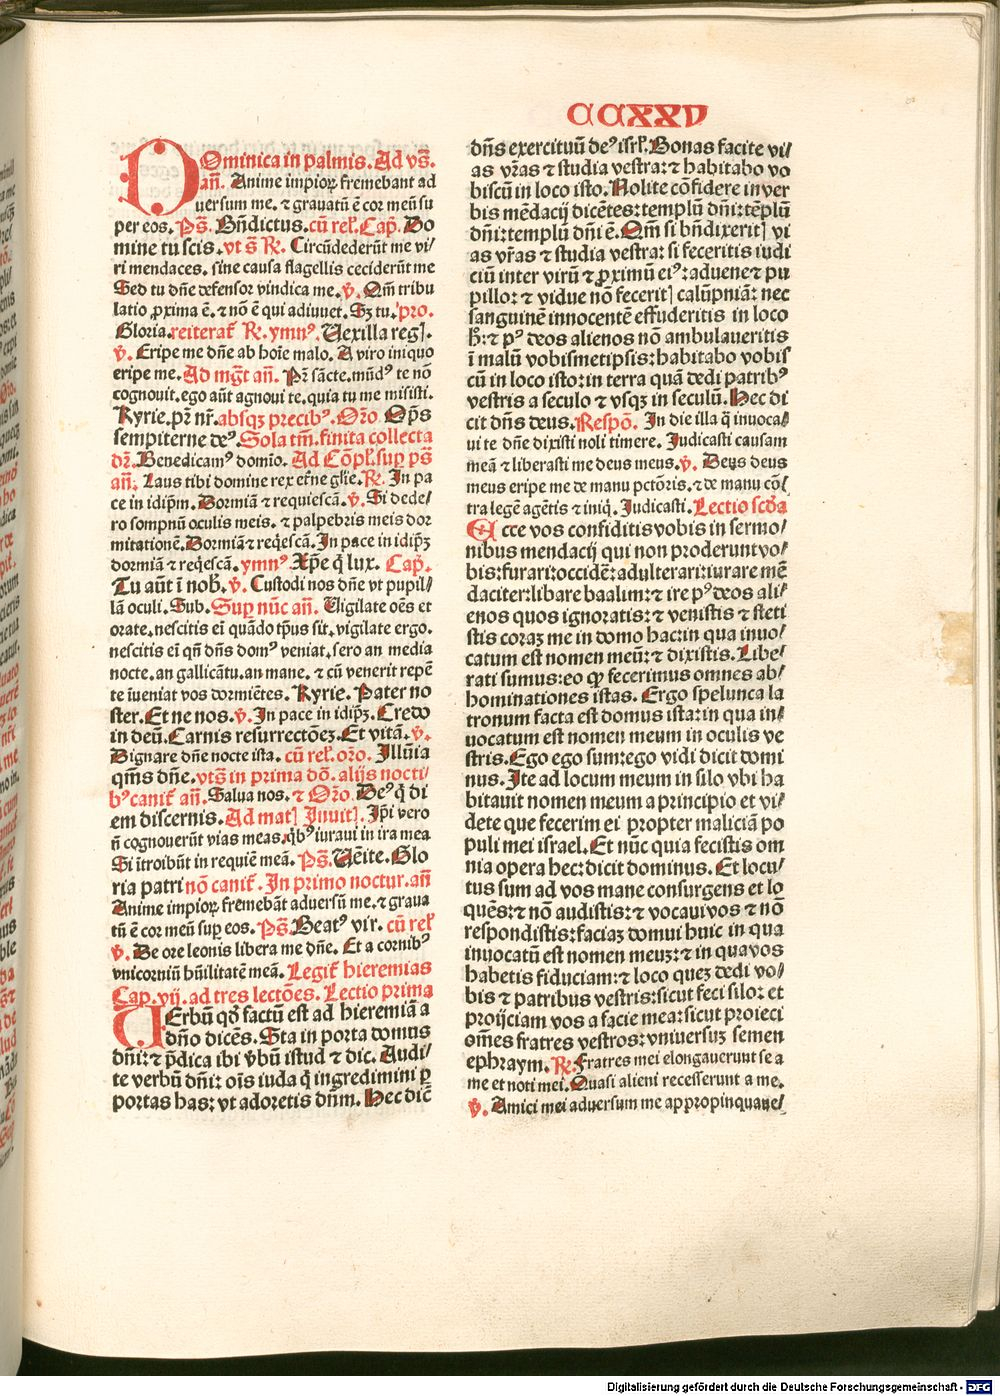 CCXXV
Dominica in palmis. Ad vs̄.
an̄. Anime impioꝝ fremebant ad
uersum me. ⁊ grauatū ē cor meū su
per eos. Ps̄. Bn̄dictus. cū rel̕. Cap. Do
mine tu scis. vt s̄ R⁊. Circūdederūt me vi/
ri mendaces. sine causa flagellis ceciderūt me
Sed tu dn̄e defensor vindica me. v̄. Qm̄ tribu
latio ꝓxima ē. ⁊ nō ē qui adiuuet. Sꝫ tu. pro.
Gloria. reiterat̕ R⁊. ymnꝰ. Uexilla reg̕.
v̄. Eripe me dn̄e ab hoīe malo. A viro iniquo
eripe me. Ad mg̅t an̄. Pr̄ sācte. mūdꝰ te nō
cognouit. ego aūt agnoui te. quia tu me misisti.
Kyrie. pr̄ nr̄. absqꝫ precibꝰ. Orō. Om̄ps
sempiterne deꝰ. Sola tm̄. finita collecta
dr̄. Benedicamꝰ domīo. Ad Cōpl̕. sup ps̄
an̄. Laus tibi domine rex et̕ne gl̕ie. R⁊. In pa
ce in idip̄m. Dormiā ⁊ requiescā. v̄. Si dede/
ro sompnū oculis meis. ⁊ palpebris meis dor
mitationē. Dormiā ⁊ req̇escā. In pace in idip̄ꝫ
dormiā ⁊ req̇escā. ymnꝰ Xp̄e q̇ lux. Cap̄.
Tu aūt ī nob̄. v̄. Custodi nos dn̄e vt pupil/
lā oculi. Sub. Suꝑ nūc an̄. Uigilate oēs et
orate. nescitis ei̅ quādo tp̄us sit. vigilate ergo.
nescitis ei̅ qn̄ dn̄s domꝰ veniat. sero an media
nocte. an gallicātu. an mane. ⁊ cū venerit repē
te īueniat vos dormiētes. Kyrie. Pater no
ster. Et ne nos. v̄. In pace in idip̄ꝫ. Credo
in deū. Carnis resurrectōeꝫ. Et vitā. v̄.
Dignare dn̄e nocte ista. cū rel̕. orō. Illūia
qm̄s dn̄e. vts̄ in prima dō. alijs nocti/
bꝰ canit̕ an̄. Salua nos. ⁊ Orō. Deꝰ q̇ di
em discernis. Ad mat̕ Inuit̕. Ip̄i vero
n̄ cognouerūt vias meas. q̇bꝰ iuraui in ira mea
Si ītroibūt in requiē meā. Ps̄. Uēite. Glo
ria patri nō canit̕. In primo noctur. an̄
Anime impioꝝ fremebāt aduersū me. ⁊ graua
tū ē cor meū suꝑ eos. Ps̄. Beatꝰ vir. cū rel̕
v̄. De ore leonis libera me dn̄e. Et a cornibꝰ
vnicorniū hūilitatē meā. Legit̕ hieremias
Cap. vij. ad tres lectōes. Lectio prima
UErbū qd̄ factū est ad hieremiā a
dn̄o dicēs. Sta in porta domus
dn̄i: ⁊ p̄dica ibi v̕bū istud ⁊ dic. Audi/
te verbū dn̄i: oīs iuda q̇ ingredimini ꝑ
portas has: vt adoretis dn̄m. Hec dic̄
dn̄s exercituū deꝰ isrl̕. Bonas facite vi/
as vr̄as ⁊ studia vestra: ⁊ habitabo vo
biscū in loco isto. Nolite cōfidere in ver
bis mēdacij dicētes: templū dn̄i: tēplū
dn̄i: templū dn̄i ē. Qm̄ si bn̄dixerit̕ vi
as vr̄as ⁊ studia vestra: si feceritis iudi
ciū inter virū ⁊ ꝓximū eiꝰ: aduene ⁊ pu
pillo: ⁊ vidue nō fecerit̕ calūpniā: nec
sanguinē innocentē effuderitis in loco
h̕: ⁊ pꝰ deos alienos nō ambulaueritis
ī malū vobismetipsis: habitabo vobis
cū in loco isto: in terra quā dedi patribꝰ
vestris a seculo ⁊ vsqꝫ in seculū. Hec di
cit dn̄s deus. Respō. In die illa q̄ inuoca/
ui te dn̄e dixisti noli timere. Judicasti causam
meā ⁊ liberasti me deus meus. v̄. Deus deus
meus eripe me de manu pctōris. ⁊ de manu cō/
tra legē agētis ⁊ iniq̇. Judicasti. Lectio scd̄a
Ecce vos confiditis vobis in sermo/
nibus mendacij qui non proderunt vo/
bis: furari: occidē: adulterari: iurare mē
daciter: libare baalim: ⁊ ire pꝰ deos ali/
enos quos ignoratis: ⁊ venistis ⁊ steti
stis coraꝫ me in domo hac: in qua inuo/
catum est nomen meū: ⁊ dixistis. Libe/
rati sumus: eo ꝙ fecerimus omnes ab/
hominationes istas. Ergo spelunca la
tronum facta est domus ista: in qua in/
uocatum est nomen meum in oculis ve
stris. Ego ego sum: ego vidi dicit domi
nus. Ite ad locum meum in silo vbi ha
bitauit nomen meum a principio et vi/
dete que fecerim ei propter maliciā po
puli mei israel. Et nūc quia fecistis om
nia opera hec: dicit dominus. Et locu/
tus sum ad vos mane consurgens et lo
quēs: ⁊ nō audistis: ⁊ vocaui vos ⁊ nō
respondistis: faciaꝫ domui huic in qua
inuocatū est nomen meuꝫ: ⁊ in qua vos
habetis fiduciam: ⁊ loco queꝫ dedi vo/
bis ⁊ patribus vestris: sicut feci silo: et
proijciam vos a facie mea: sicut proieci
om̄es fratres vestros: vniuersuꝫ semen
ephraym. R⁊. Fratres mei elongauerunt se a
me et noti mei. Quasi alieni recesserunt a me.
v̄. Amici mei aduersum me appropinquaue/
Digitalisierung gefördert durch die Deutsche Forschungsgemeinschaft - DFG